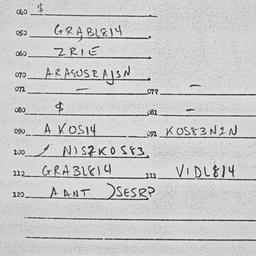 040 $
050 GRABL814
060 ZRIE
070 ARASUSRAJSN
071 — 072 —
080 $ 081 —
090 AKOS14 091 KOS83N2N
100 NISZKOS83
110 GRABL814 111 VIDL814
120 AANT )SESRP